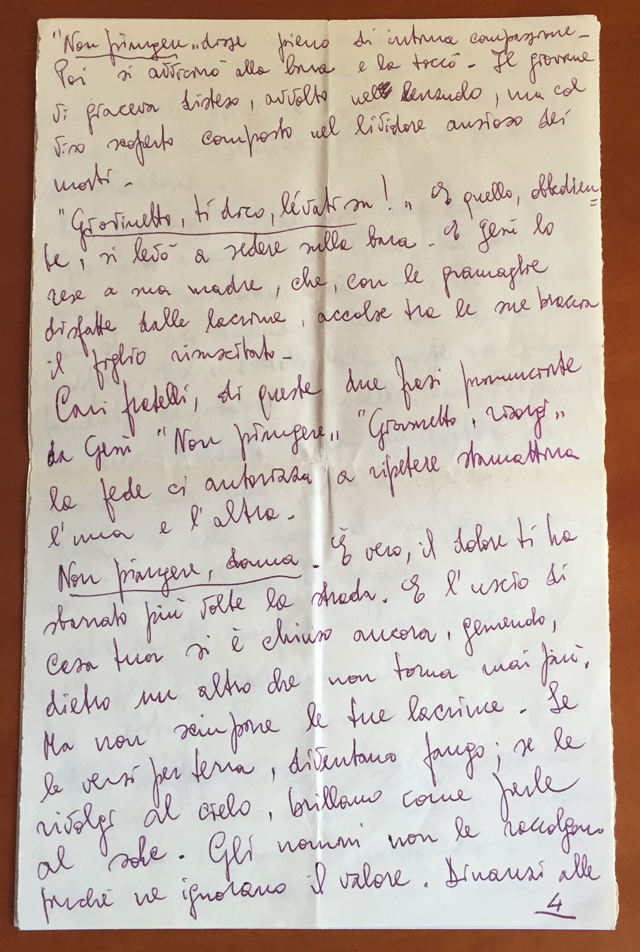 "Non piangere„ disse pieno di intima compassione-
Poi si avvicinò alla bara e la toccò- Il giovane
vi giaceva disteso, avvolto nel lenzuolo, ma col
viso scoperto composto nel lividore ansioso dei
morti-
"Giovinetto, ti dico, lévati su!„ E quello, obbedien=
te, si levò a sedere sulla bara- E Gesù lo
rese a sua madre, che, con le gramaglie
disfatte dalle lacrime, accolse tra le sue braccia
il figlio risuscitato-
Cari fratelli, di queste due frasi pronunciate
da Gesù "Non piangere„ "Giovinetto, risorgi„
la fede ci autorizza a ripetere stamattina
l'una e l'altra-
Non piangere, donna. È vero, il dolore ti ha
sbarrato più volte la strada. E l'uscio di
casa tua si è chiuso ancora, gemendo,
dietro un altro che non torna mai più.
Ma non sciupare le tue lacrime. Se
le versi per terra, diventano fango; se le
rivolgi al cielo, brillano come perle
al sole. Gli uomini non le raccolgono
perché ne ignorano il valore. Dinanzi alle
4